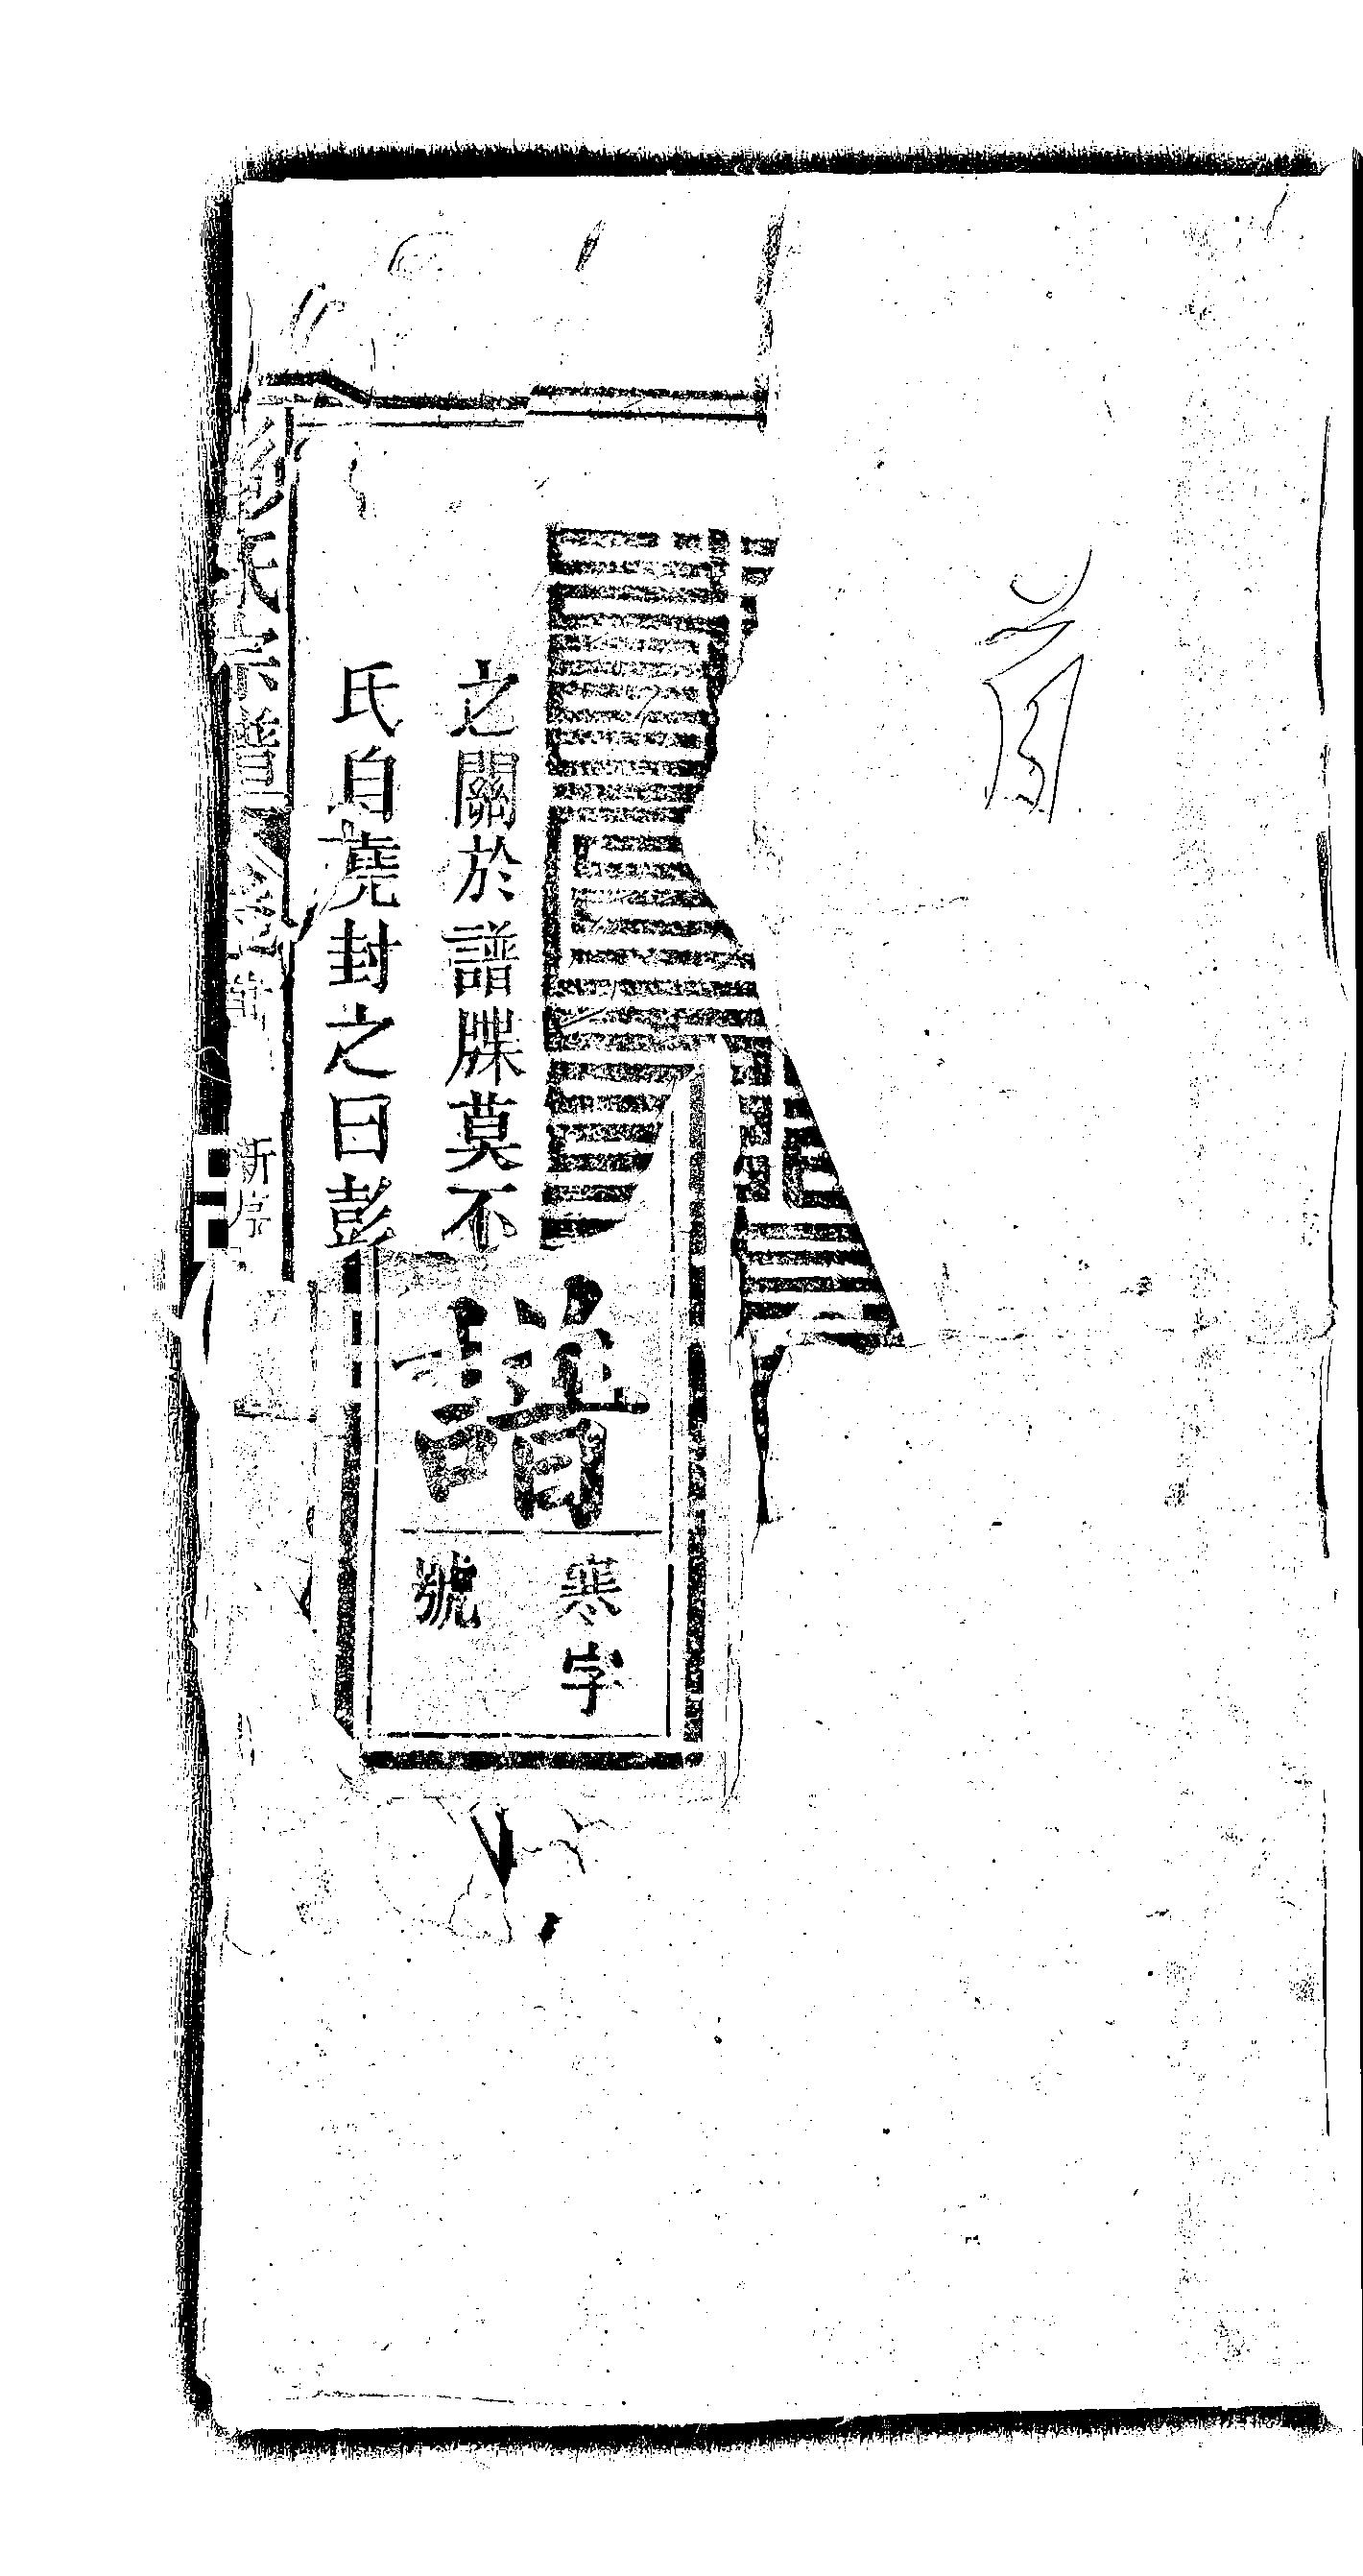 首
之關於譜牒莫不
氏自堯封之曰彭
譜
寒字
號
彭氏宗譜
新序